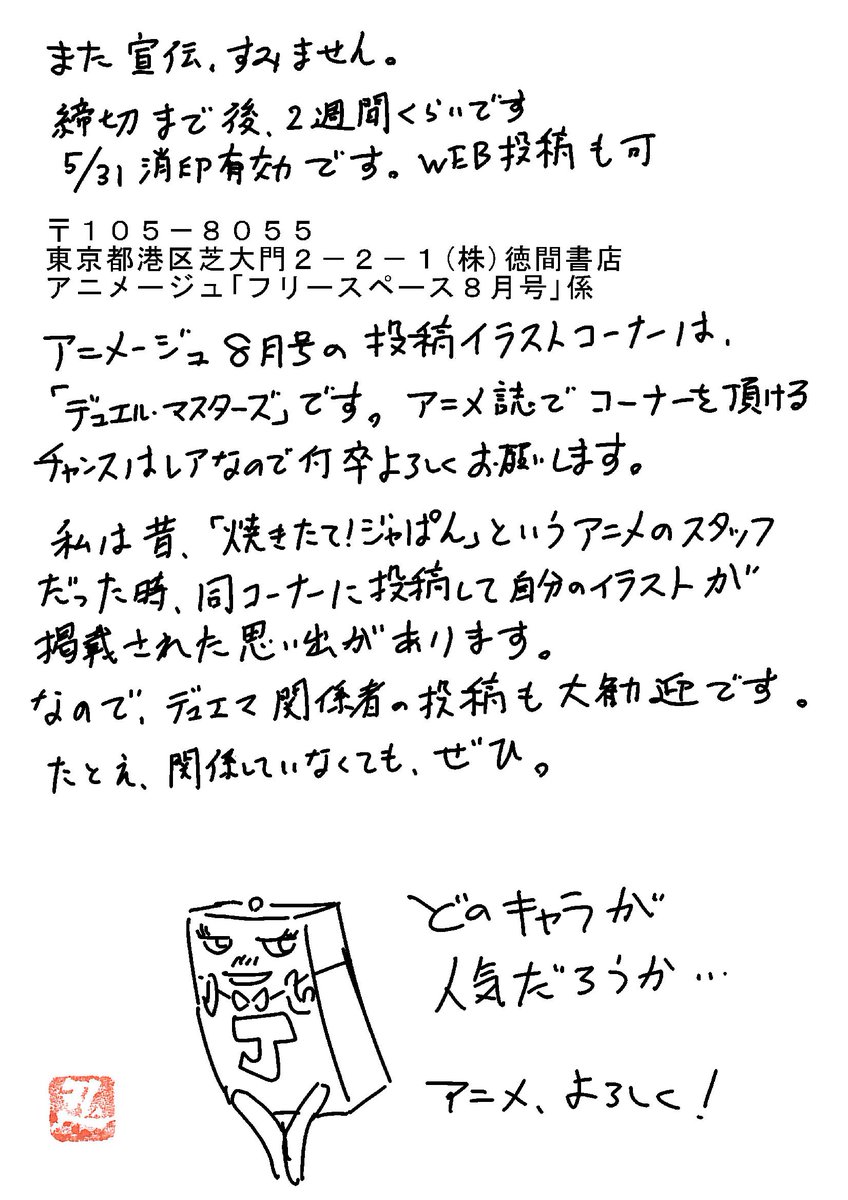 また宣伝、すみません。
締切まで後、2週間くらいです
5/31消印有効です。WEB投稿も可
〒１０５－８０５５
東京都港区芝大門２－２－１（株）徳間書店
アニメージュ「フリースペース８月号」係
アニメージュ8月号の投稿イラストコーナーは、
「デュエル・マスターズ」です。アニメ誌でコーナーを頂ける
チャンスはレアなので何卒よろしくお願いします。
私は昔、「焼きたて!ジャぱん」というアニメのスタッフ
だった時、同コーナーに投稿して自分のイラストが
掲載された思い出があります。
なので、デュエマ関係者の投稿も大歓迎です。
たとえ、関係していなくても、ぜひ。
どのキャラが
人気だろうか…
J
アニメ、よろしく!